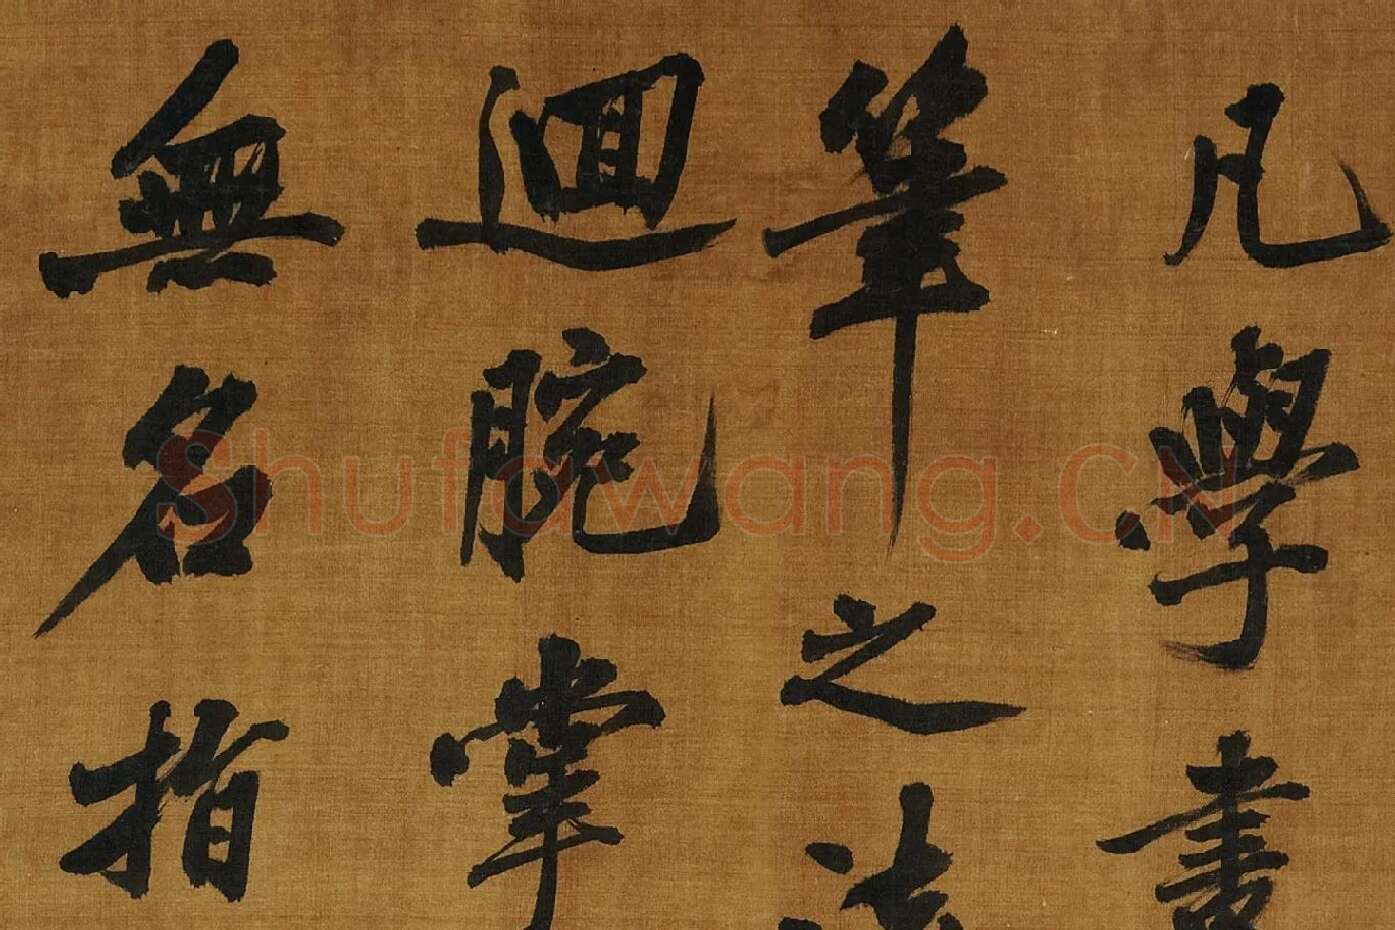 凡學書
筆之法
迴腕掌
無名指
Shufawang.CN